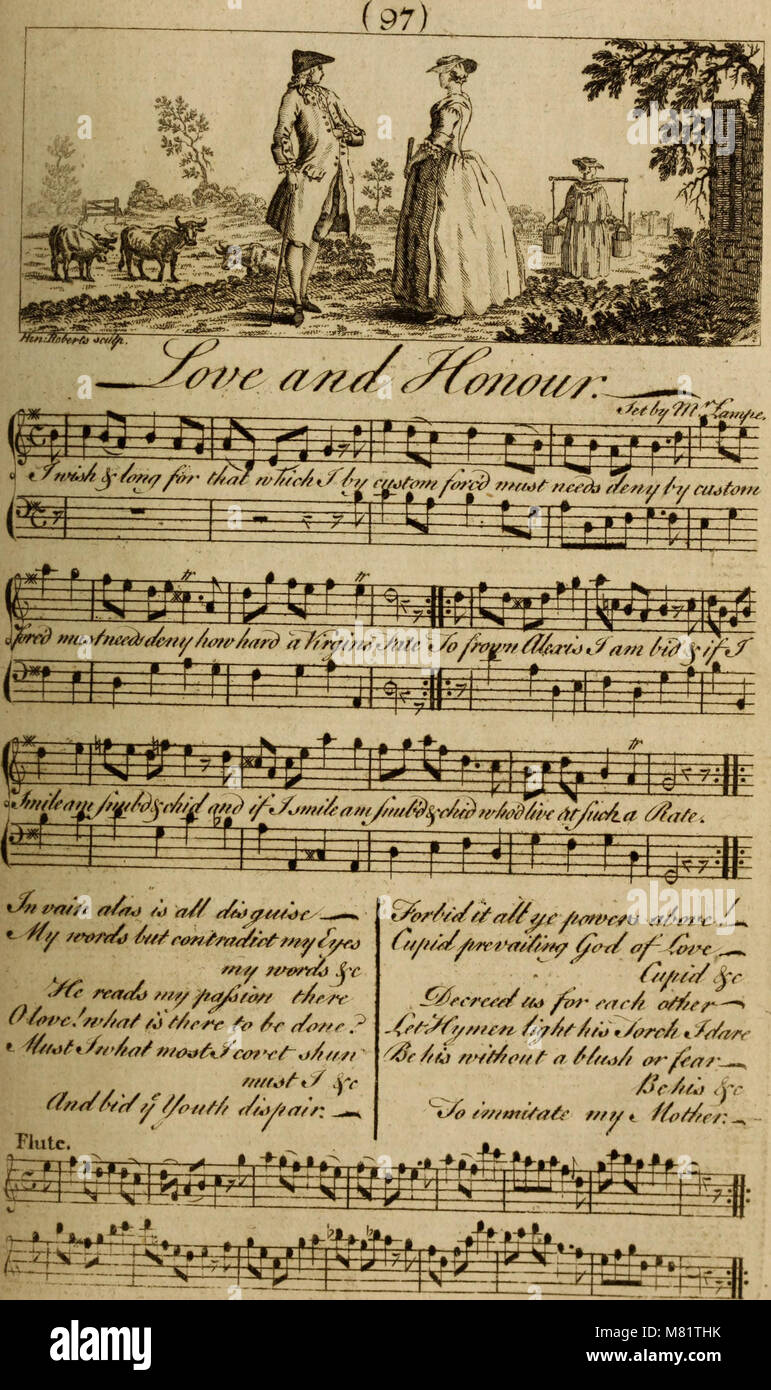 (97)
Hen: Roberts sculp.
Love and Honour.
Set by Mr. Lampe.
I wish & long for that which I by custom forc'd must needs deny by custom
forc'd must needs deny how hard a Virgins fate To frown Alexis I am bid & if I
Smile am snub'd & chid and if I smile am snub'd & chid who'd live at such a Rate.
In vain alas is all disguise
My words but contradict my Eyes
my words &c
He reads my passion there
O love! what is there to be done?
Must I what most I covet shun
must I &c
And bid ye Youth dispair.
Forbid it all ye powers above!
Cupid prevailing God of Love
Cupid &c
Decreed us for each other
Let Hymen light his Torch I dare
Be his without a blush or fear
Be his &c
To immitate my Mother.
Flute.
alamy
Image ID: M81THK
www.alamy.com